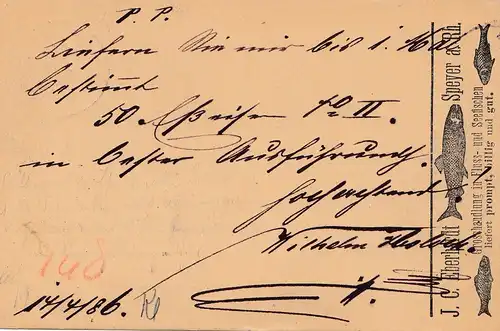 P. P.
Liefern Sie mir bis 1. Mai
bestimmt
50
in bester Ausführung.
Hochachtend
Wilhelm
148
14/4/86.
J. C. Eberhardt Speyer a. Rh.
Grosshandlung in Fluss- und Seefischen
liefert prompt, billig und gut.